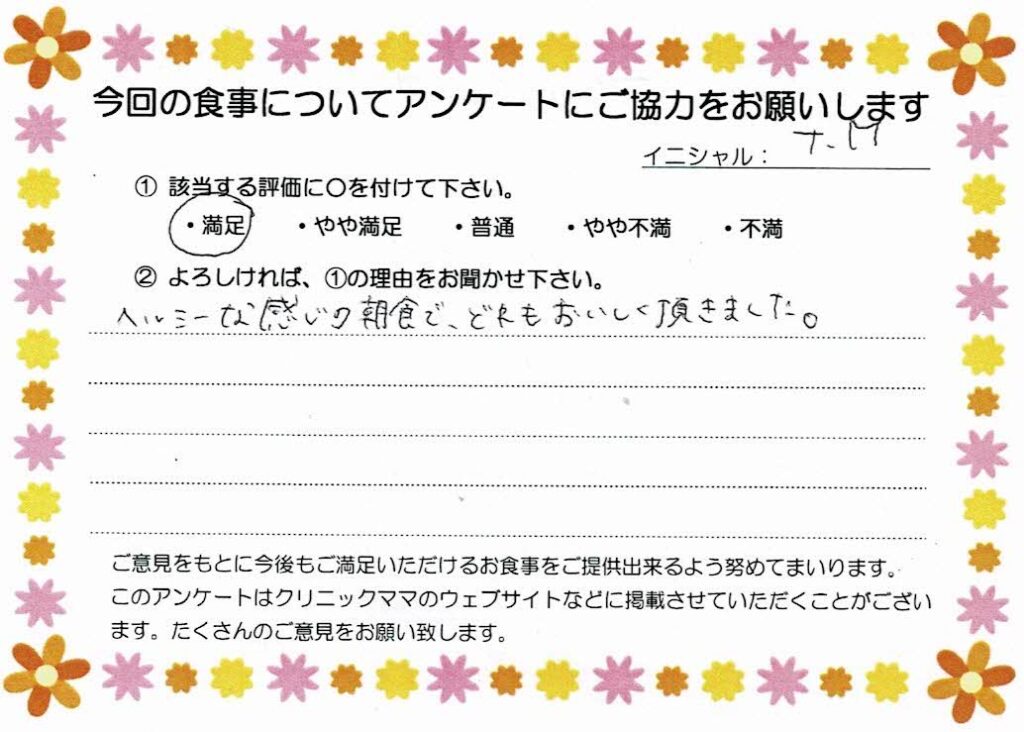 今回の食事についてアンケートにご協力をお願いします
イニシャル： T.M
① 該当する評価に〇を付けて下さい。
・満足 ・やや満足 ・普通 ・やや不満 ・不満
② よろしければ、①の理由をお聞かせ下さい。
ヘルシーな感じの朝食で、どれもおいしく頂きました。
ご意見をもとに今後もご満足いただけるお食事をご提供出来るよう努めてまいります。
このアンケートはクリニックママのウェブサイトなどに掲載させていただくことがござい
ます。たくさんのご意見をお願い致します。